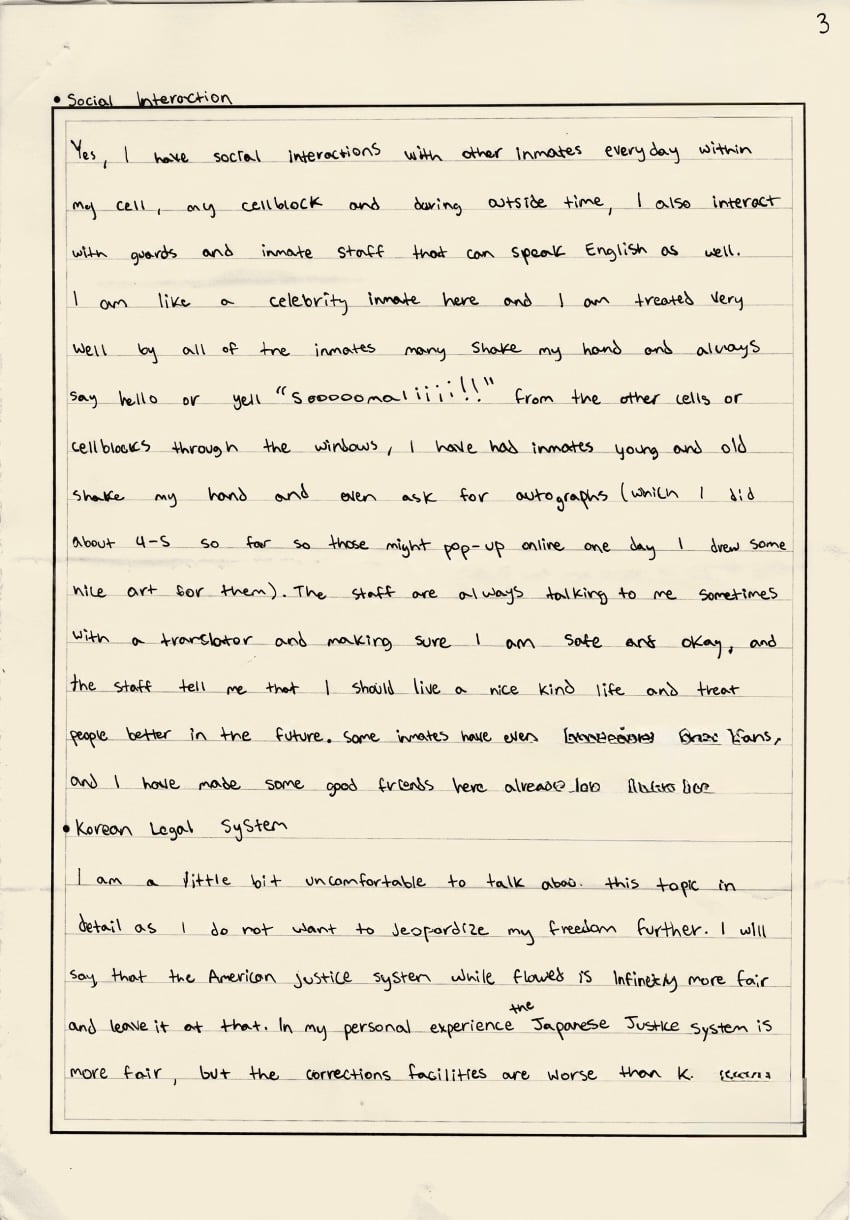 3
• Social Interaction
Yes, I have social interactions with other inmates everyday within
my cell, my cellblock and during outside time, I also interact
with guards and inmate staff that can speak English as well.
I am like a celebrity inmate here and I am treated very
well by all of the inmates many shake my hand and always
say hello or yell "Sooooomaliiii!!" from the other cells or
cellblocks through the windows, I have had inmates young and old
shake my hand and even ask for autographs (which I did
about 4-5 so far so those might pop-up online one day I drew some
nice art for them). The staff are always talking to me sometimes
with a translator and making sure I am safe and okay, and
the staff tell me that I should live a nice kind life and treat
people better in the future. Some inmates have even fans,
and I have made some good friends here already
• Korean Legal System
I am a little bit uncomfortable to talk this topic in
detail as I do not want to jeopardize my freedom further. I will
say that the American justice system while flawed is infinetly more fair
and leave it at that. In my personal experience the Japanese Justice System is
more fair, but the corrections facilities are worse than K.